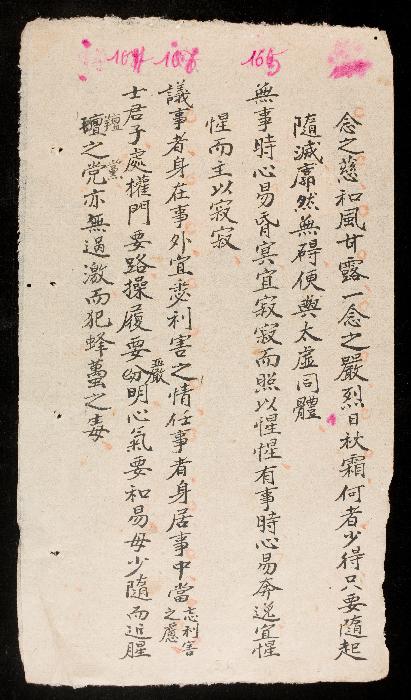 念之慈和風甘露一念之嚴烈日秋霜何者少得只要隨起
隨滅廓然無碍便與太虛同體
165
無事時心易昏冥宜寂寂而照以惺惺有事時心易奔逸宜惺
惺而主以寂寂
166
議事者身在事外宜悉利害之情任事者身居事中當忘利害之慮
士君子處權門要路操履要嚴明心氣要和易毋少隨而近腥
羶之党亦無過激而犯蜂蠆之毒
黨